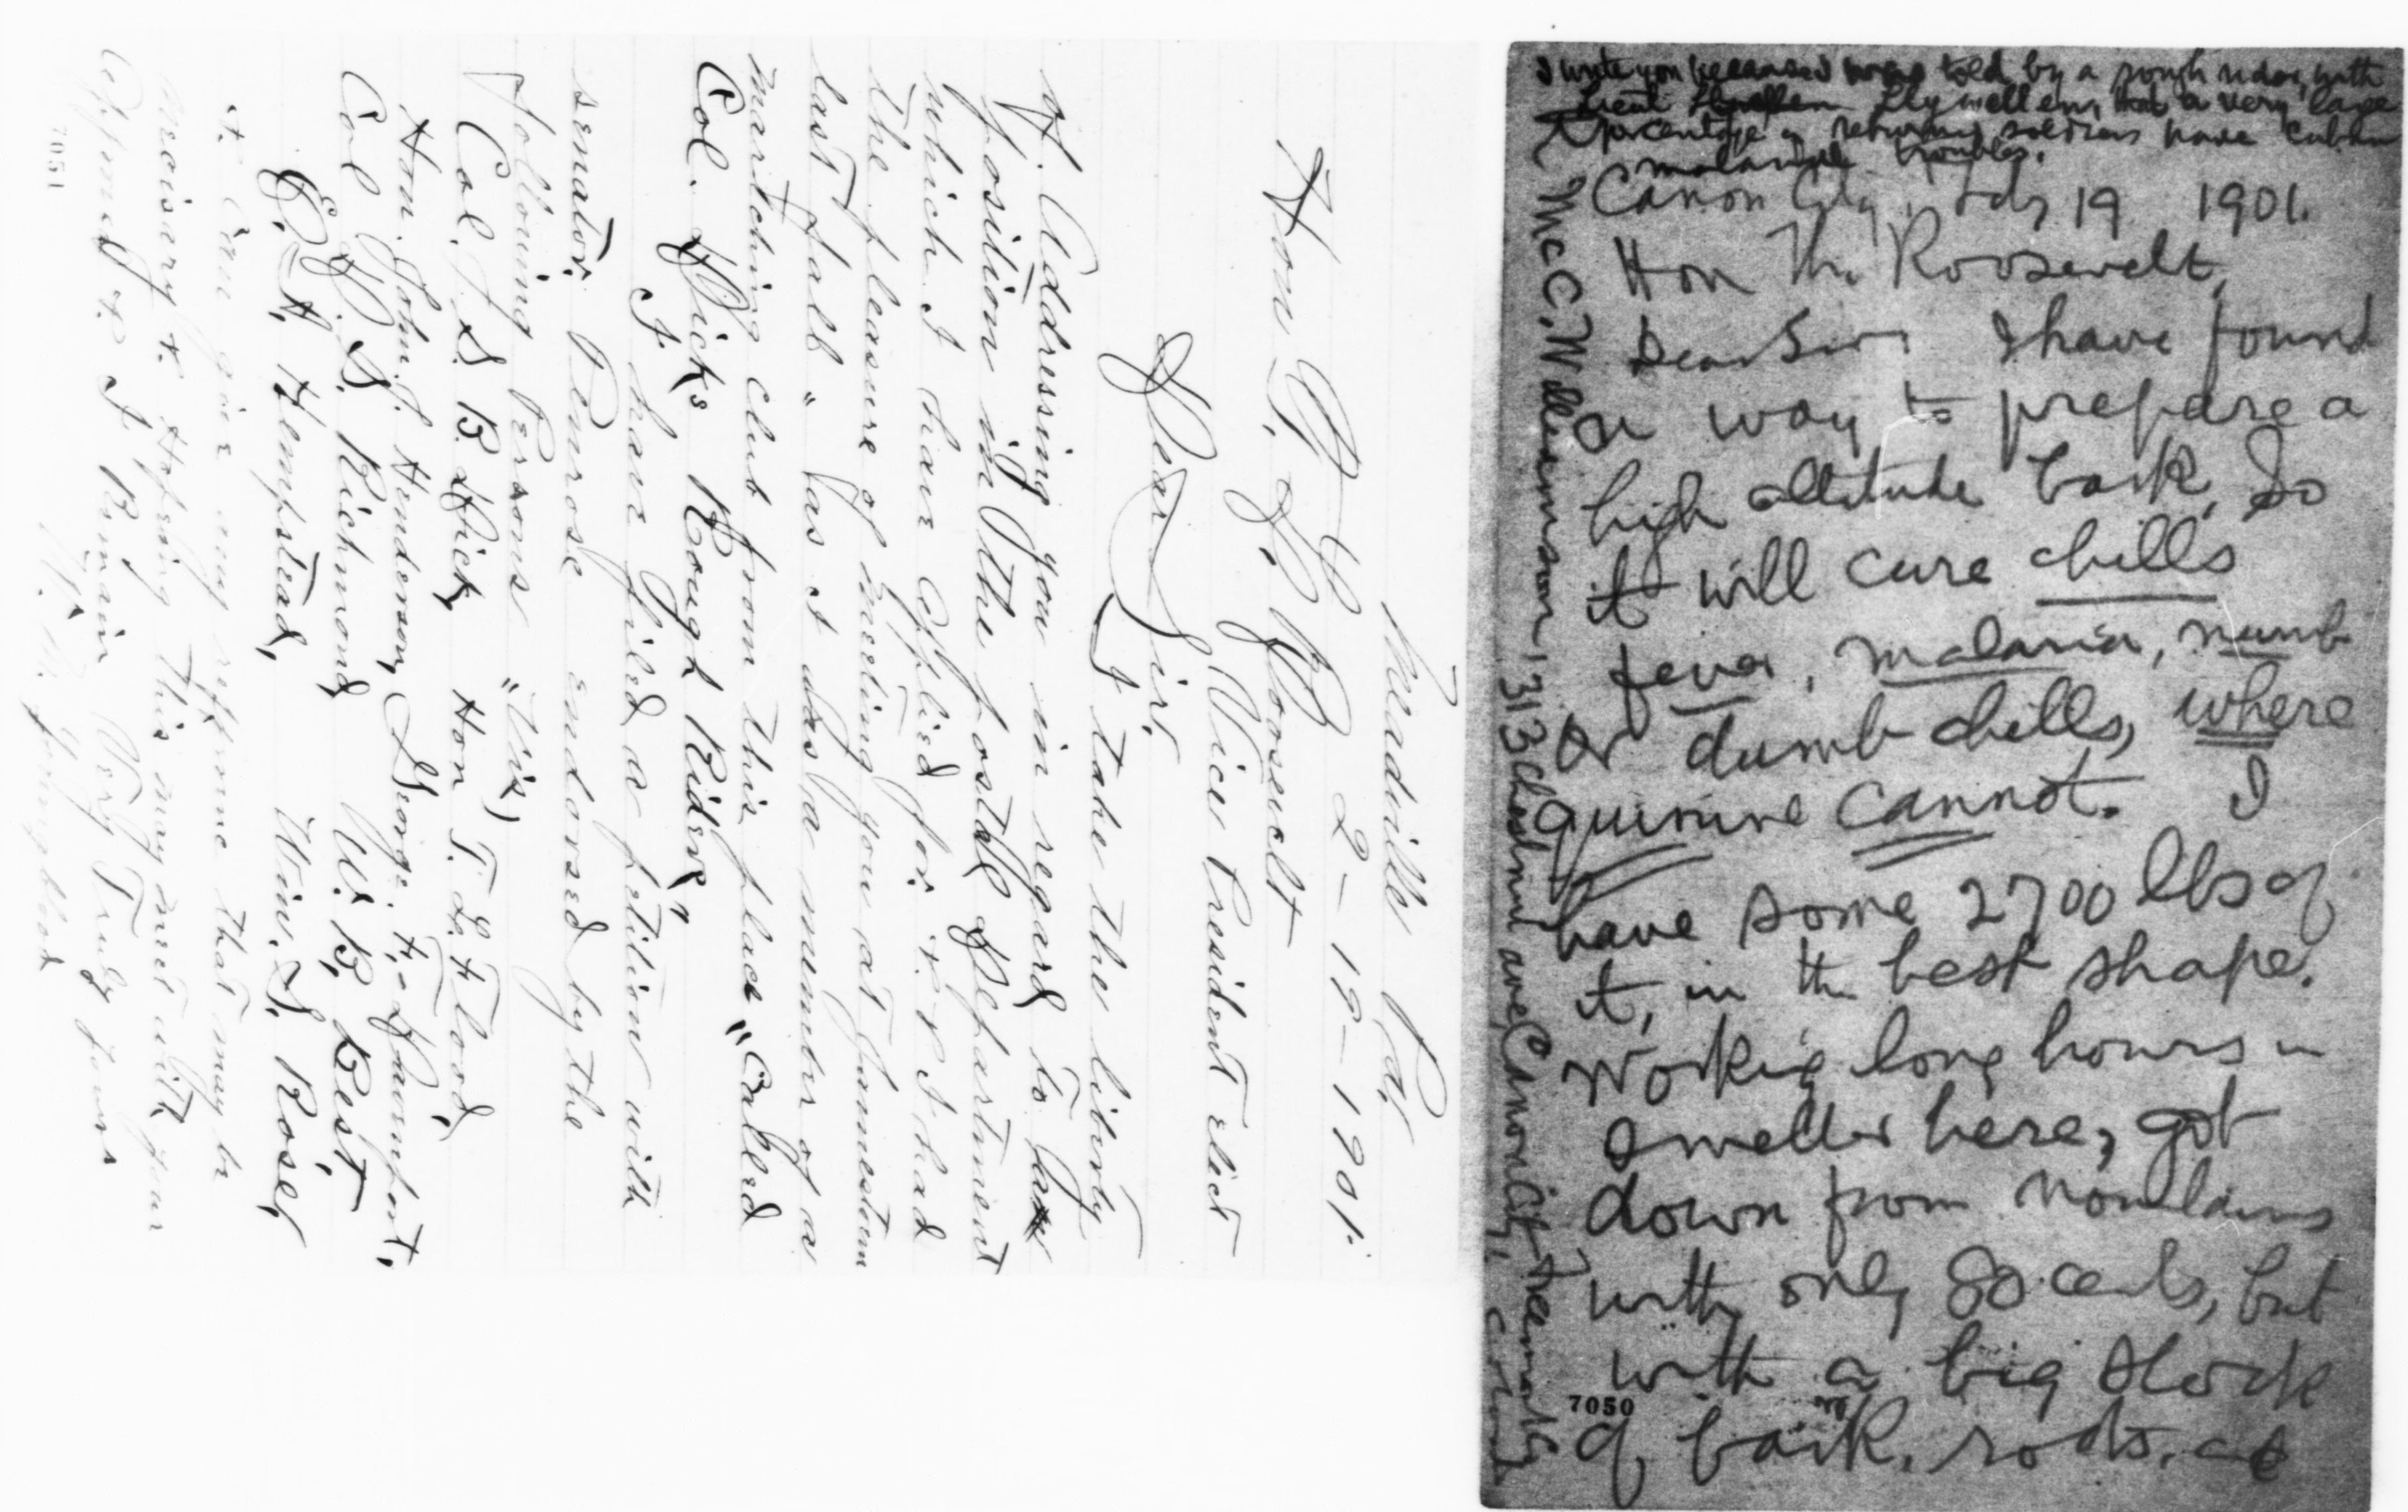 Meadville Pa.
2-19-1901.
Hon, T. Roosevelt
Vice President elect
Dear Sir,
I take the liberty
of Addressing you in regard to a
position in "The postall Department
which I have applied for. I had
the pleasure of meeting you at Jamestown
last fall" as I was a member of a
marching club from this place "Called
Col. Dick's Rough Riders,"
I have filed a petition with
senator Penrose endorsed by the
following Persons "(Viz)
Col. S. B. Dick, Hon T. L. Flood,
Hon. John J. Henderson, George. H. Davenport.
Col. D. S. Richmond, W. B. Best
E. H. Hempstead, Wm. S. Rose,
I can give any refference that may be
necisary & Hopeing this may meet with your
Approval & I Remain Very Truly yours
7051
I write you because I was told by a rough rider, with
Lieut Llywellen, that a very large
percentage of returning soldiers have Cuban
malarial troubles.
Canon City, Feby 19 1901.
Hon Th. Roosevelt,
Dear Sir, I have found
a way to prepare a
high altitude bark, So
it will cure chills
fever, malaria, numb
or dumb chills, where
quinine cannot. I
have some 2700 lbs of
it, in the best shape.
Working long hours in
smelter here, got
down from mountains
with only 80 cents, but
with a big stock
of bark, roots, and
McC. Williamson, 313 Chestnut ave, Canon City, Freemont Co
7050